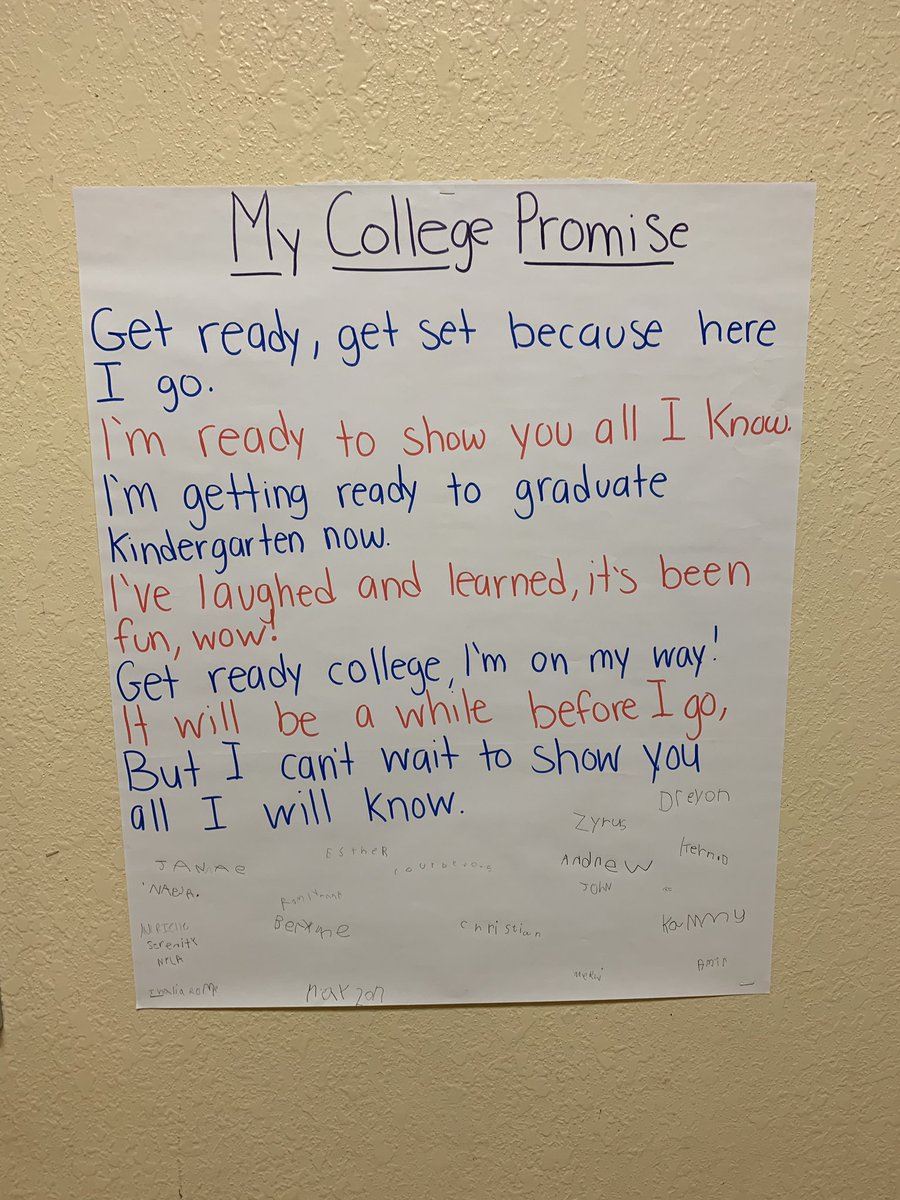 My College Promise
Get ready, get set because here
I go.
I'm ready to show you all I know.
I'm getting ready to graduate
kindergarten now.
I've laughed and learned, it's been
fun, wow!
Get ready college, I'm on my way!
It will be a while before I go,
But I can't wait to show you
all I will know.
Drevon
Zyrus
Esther
JANAE
Andnew
JOHN
Kammy
Christian
Serenity
NYLA
Amir